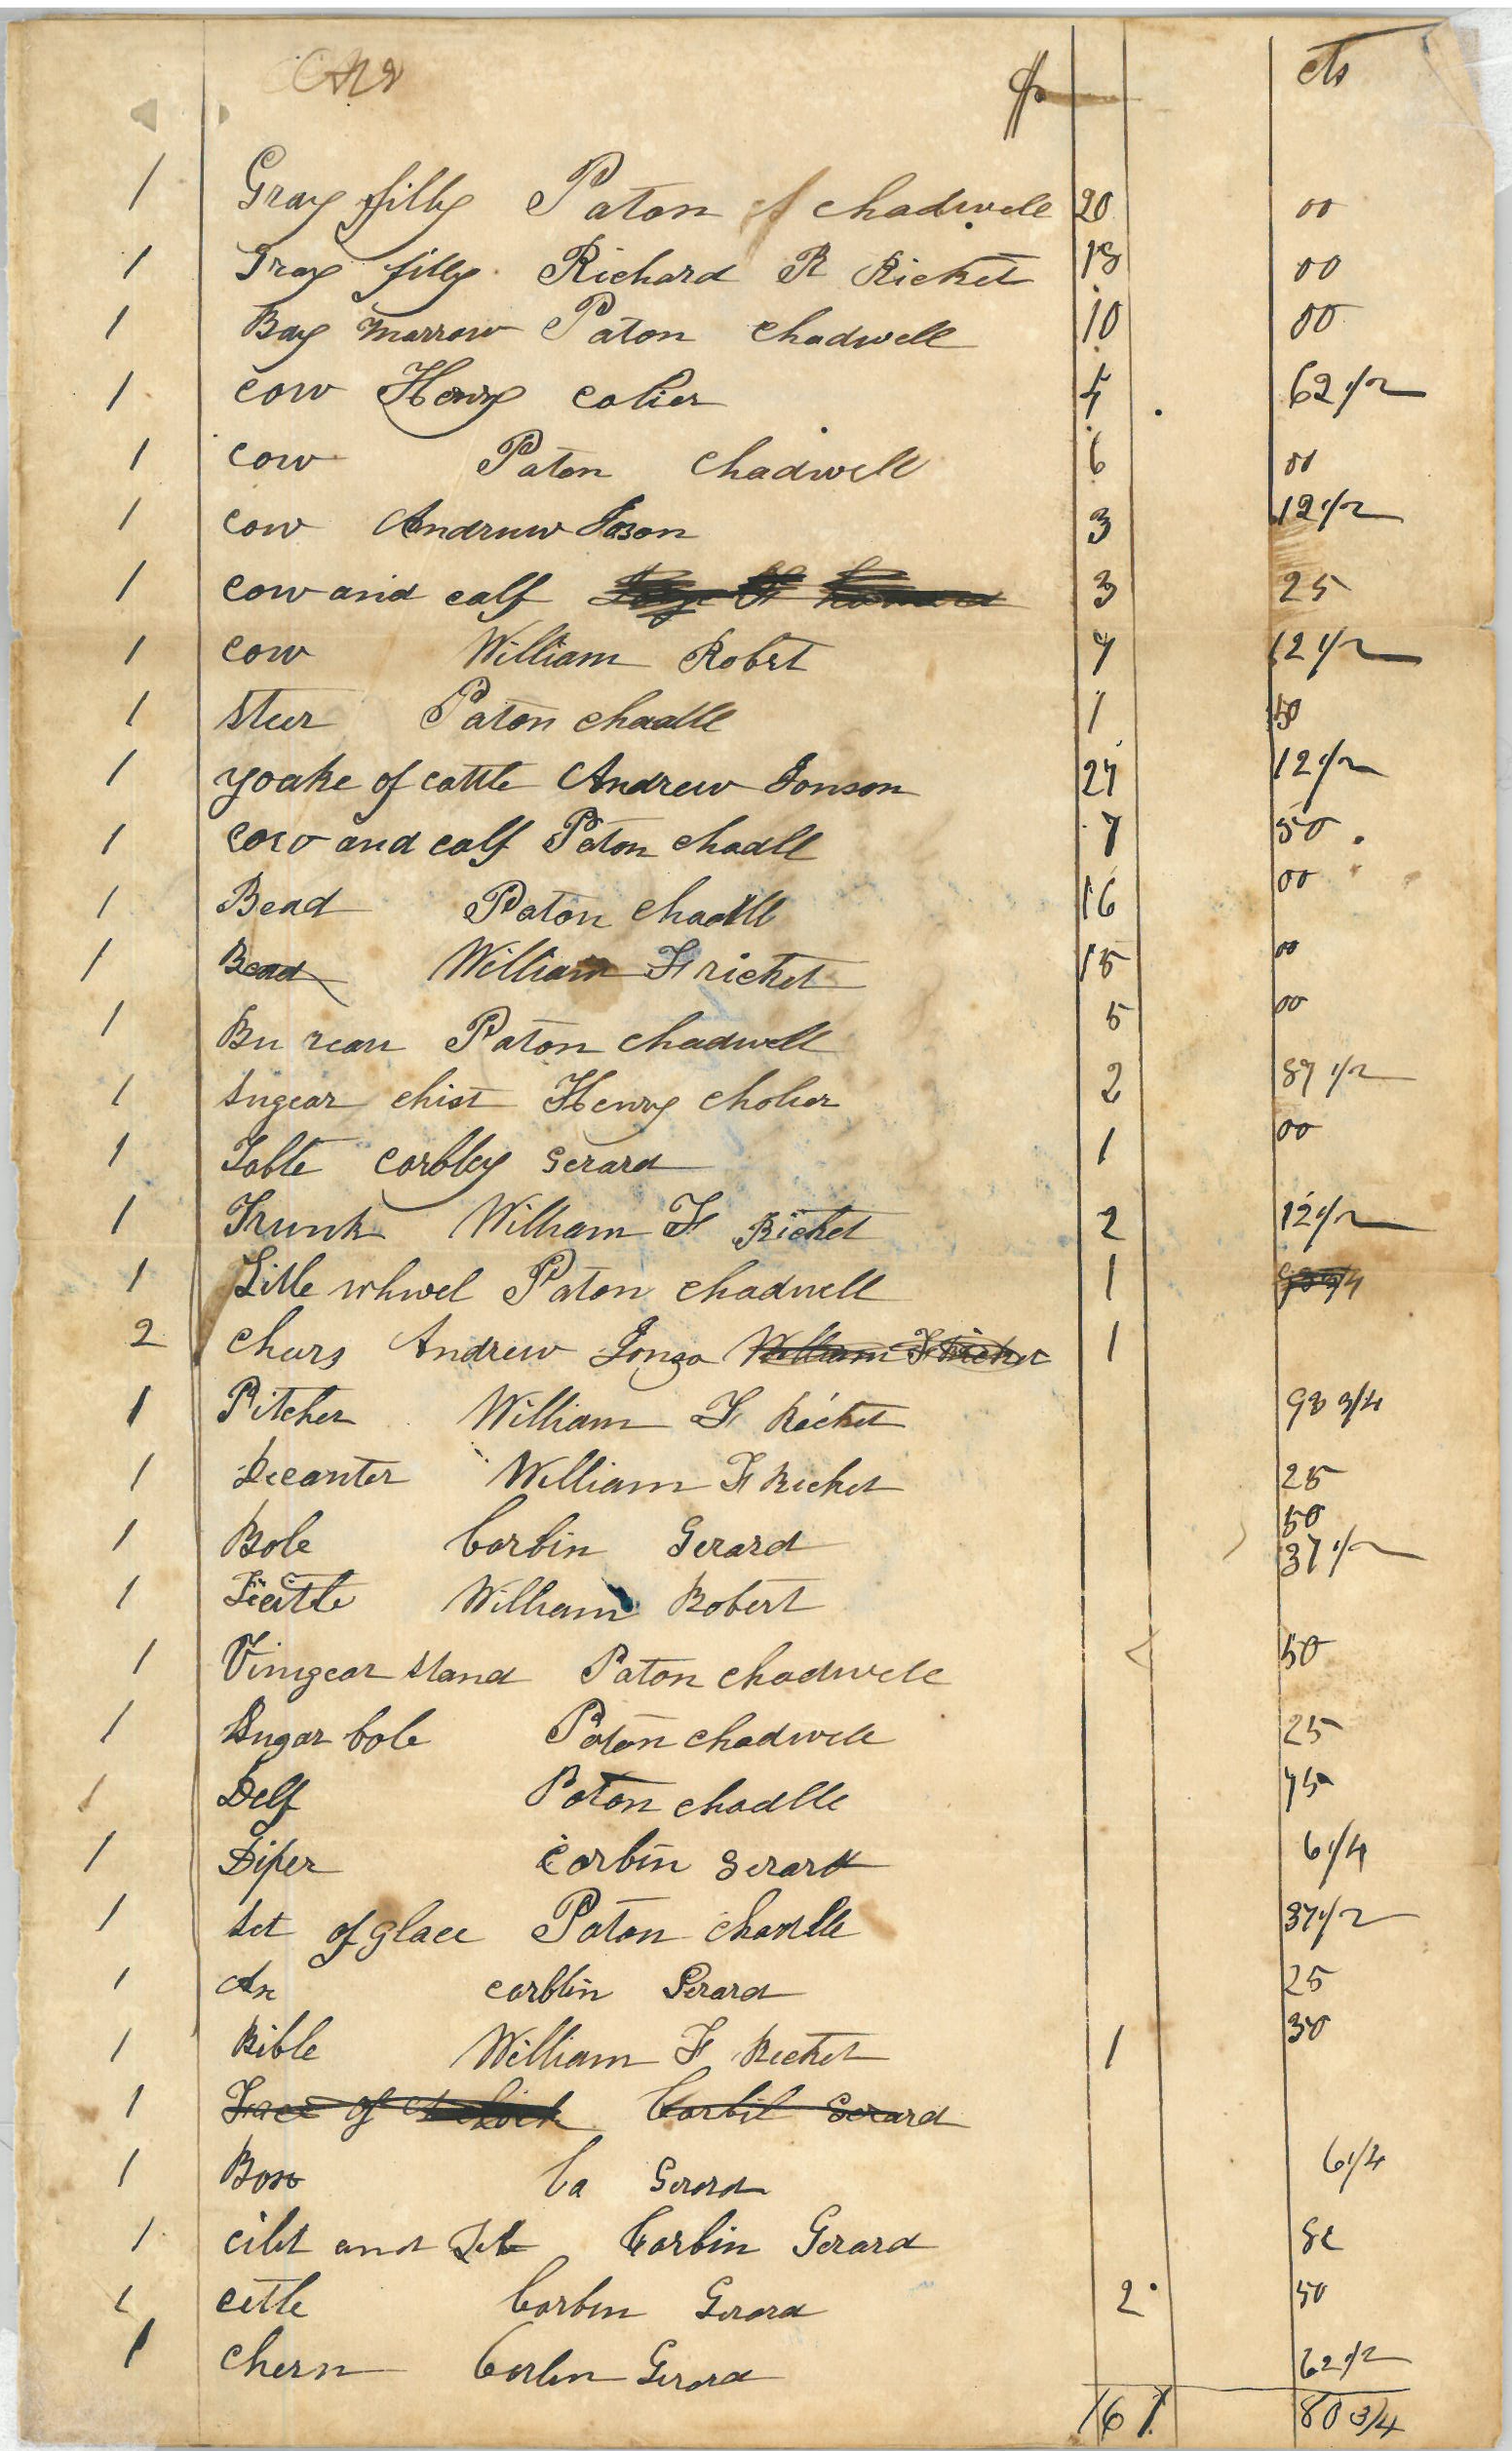 $ cts
1 Gray filly Paton chadwell 20 00
1 Gray filly Richard R Ricket 18 00
1 Bay marrow Paton chadwell 10 00
1 cow Henry colier 62 1/2
1 cow Paton chadwell 6 00
1 cow Andruw Joson 3 12 1/2
1 cow and calf 3 25
1 cow William Robert 12 1/2
1 steer Paton chadle 1 50
1 yoake of cattle Andrew Jonson 12 1/2
1 cow and calf Paton chadll 7 50
1 Bead Paton chadll 16 00
1 Bead William F ricket 15 00
1 Bu reau Paton chadwell 5 00
1 sugear chist Henry Cholier 2 1/2
1 Table corbley Gerard 1 00
1 Trunk William F Ricket 2 12 1/2
1 Litle whwel Paton chadwell 1
2 Chars Andrew Jonso William F Ricket 1
1 Pitcher William F Ricket 93 3/4
1 Decanter William F Ricket 25
1 Bole Corbin Gerard 50
37 1/2
1 William Robert
1 Vinigear stand Paton chadwell 50
1 sugar bole Paton chadwell 25
1 Delf Paton chadlle 75
1 Diper Corbin Gerard 6 1/4
1 set of glace Paton chadlle 37 1/2
1 Ax corblin Gerard 25
1 Bible William F Ricket 1 50
1 of Corbil Gerard
1 Box Ca Gerard 6 1/4
1 and Corbin Gerard
1 cettle Corbin Gerard 2 50
1 chern Corbin Gerard 62 1/2
161 80 3/4